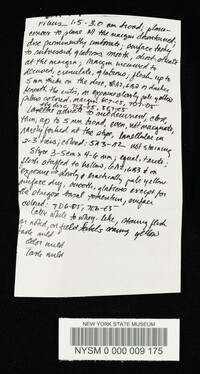 Pileus 1.5-3.0 cm broad, plano-
convex to plane all the margin downturned,
disc prominently umbonate, surface tacky
to subviscid glabrous, smooth, short striate
at the margin, margin incurved to
decurved, crenulate, glabrous, flesh up to
5 mm thick on the disc, 8A2, 6B3 or dusky
beneath the cutis, on exposure slowly pale yellow
colored: margin 6E7-E5, 7D7-D5
Lamellae adnate to subdecurrent, close,
thin, up to 5 mm broad, even, not marginate,
rarely forked at the stipe, lamellulae in
2-3 tiers; colored: 5A3-A2 not staining
Stipe 3-5 cm x 4-6 mm, equal, terete,
flesh stuffed to hollow, 6A2, 6B3 & on
exposure slowly & erratically pale yellow
surface dry, smooth, glabrous except for
the strigose basal tomentum, surface
colored: 7D6-D5, 7E6-E5
Latex white to whey-like, staining flesh
as noted, on field labels staining yellow
taste mild
odor mild
taste mild
NEW YORK STATE MUSEUM
NYSM 0 000 009 175